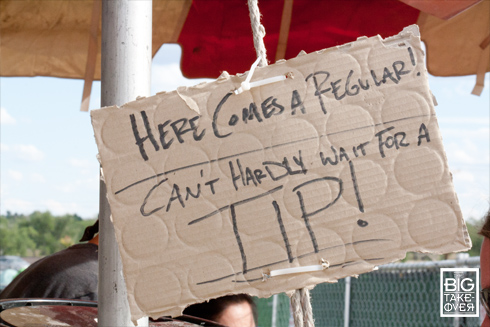 HERE COMES A REGULAR!
CAN'T HARDLY WAIT FOR A
TIP!
BIG
TAKE-
OVER